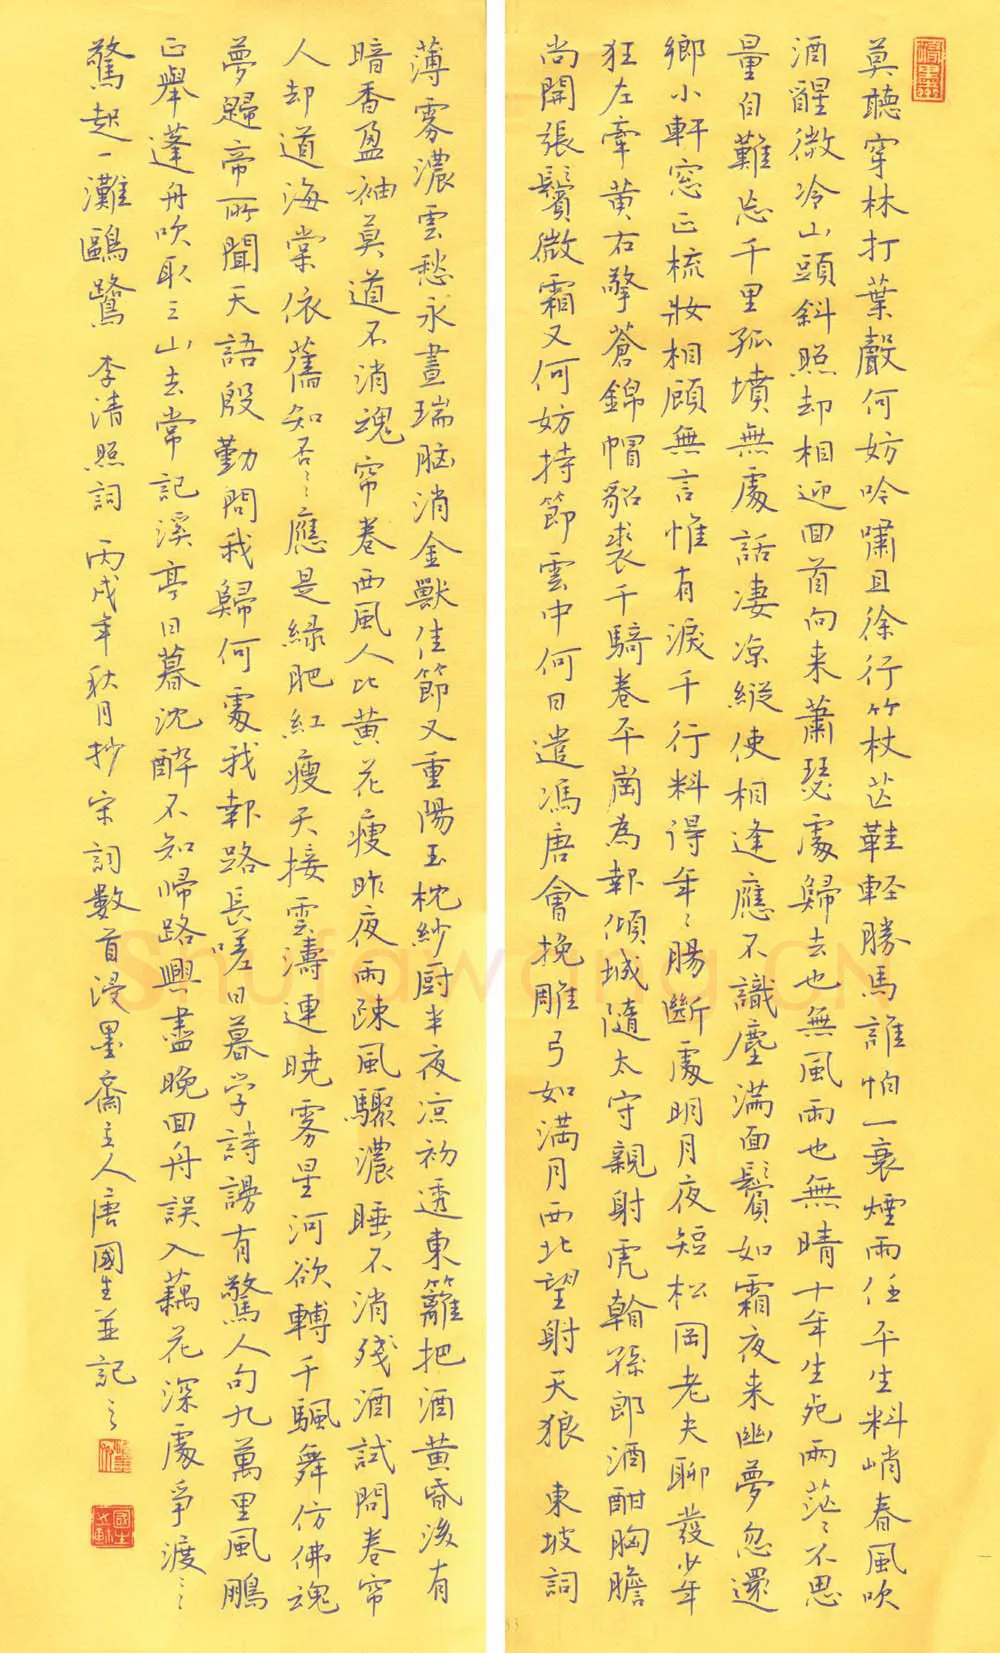 莫聽穿林打葉聲何妨吟嘯且徐行竹杖芒鞋軽勝馬誰怕一衰煙雨任平生料峭春風吹
酒醒微冷山頭斜照却相迎回首向来蕭瑟處歸去也無風雨也無晴十年生死兩茫〻不思
量自難忘千里孤墳無處話凄凉縱使相逢應不識塵满面鬢如霜夜来幽夢忽還
鄉小軒窓正梳妝相顧無言惟有淚千行料得年〻腸斷處明月夜短松岡老夫聊發少年
狂左牽黄右擎蒼錦帽貂裘千騎卷平崗為報傾城隨太守親射虎孫郎酒酣胸膽
尚開張鬢微霜又何妨持節雲中何日遣馮唐會挽雕弓如满月西北望射天狼 東坡詞
薄霧濃雲愁永晝瑞脑消金獸佳節又重陽玉枕紗厨半夜凉初透東籬把酒黄昏後有
暗香盈袖莫道不消魂帘卷西風人比黄花瘦昨夜雨疎風驟濃睡不消殘酒試問卷帘
人却道海棠依舊知否〻應是緑肥紅瘦天接雲濤連曉霧星河欲轉千颿舞仿佛魂
夢歸帝所聞天語殷勤問我歸何處我報路長嗟日暮学詩謾有驚人句九萬里風鵬
正舉蓬舟吹取三山去常記溪亭日暮沈醉不知歸路興盡晚回舟誤入藕花深處爭渡〻
驚起一灘鷗鷺 李清照詞 丙戌年秋月抄宋詞數首浸墨齋主人唐國生並記之
Shufawang.CN